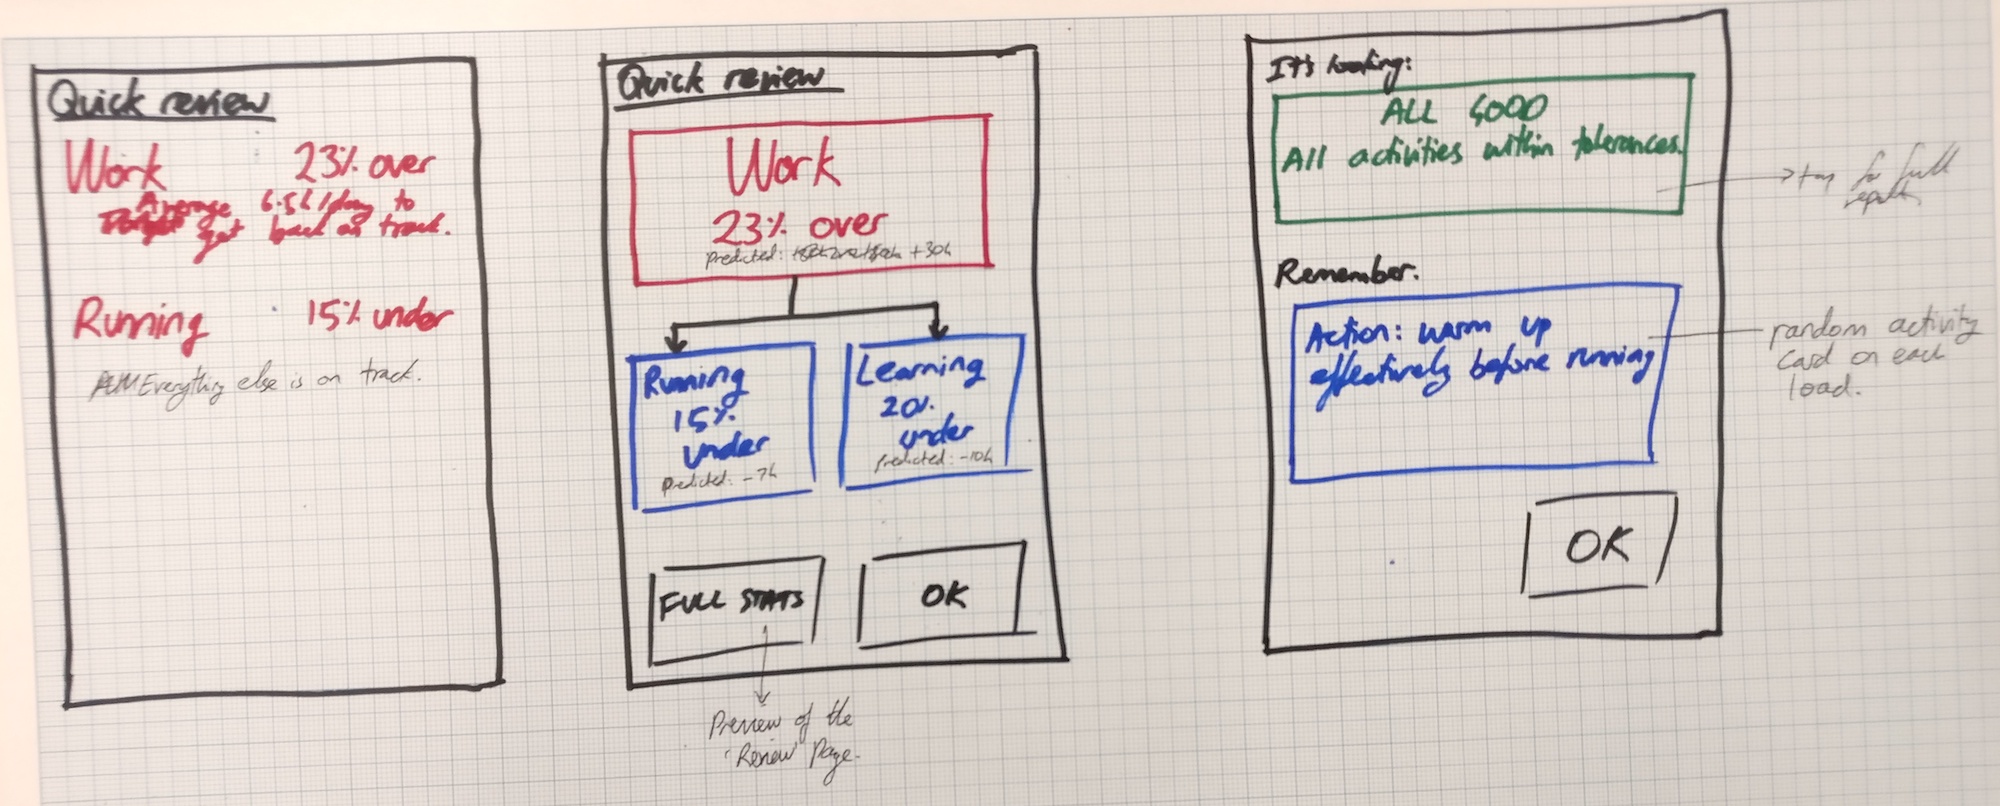 Quick review
Work 23% over
Average 6.5h/day to
get back on track.
Running 15% under
Everything else is on track.
Quick review
Work
23% over
Predicted: +30h
Running
15%
under
Predicted: -7h
Learning
20%
under
Predicted: -10h
FULL STATS
OK
Preview of the
'Review' Page.
It's looking:
ALL GOOD
All activities within tolerances.
tap for full
report
Remember.
Action: warm up
effectively before running
random activity
card on each
load.
OK